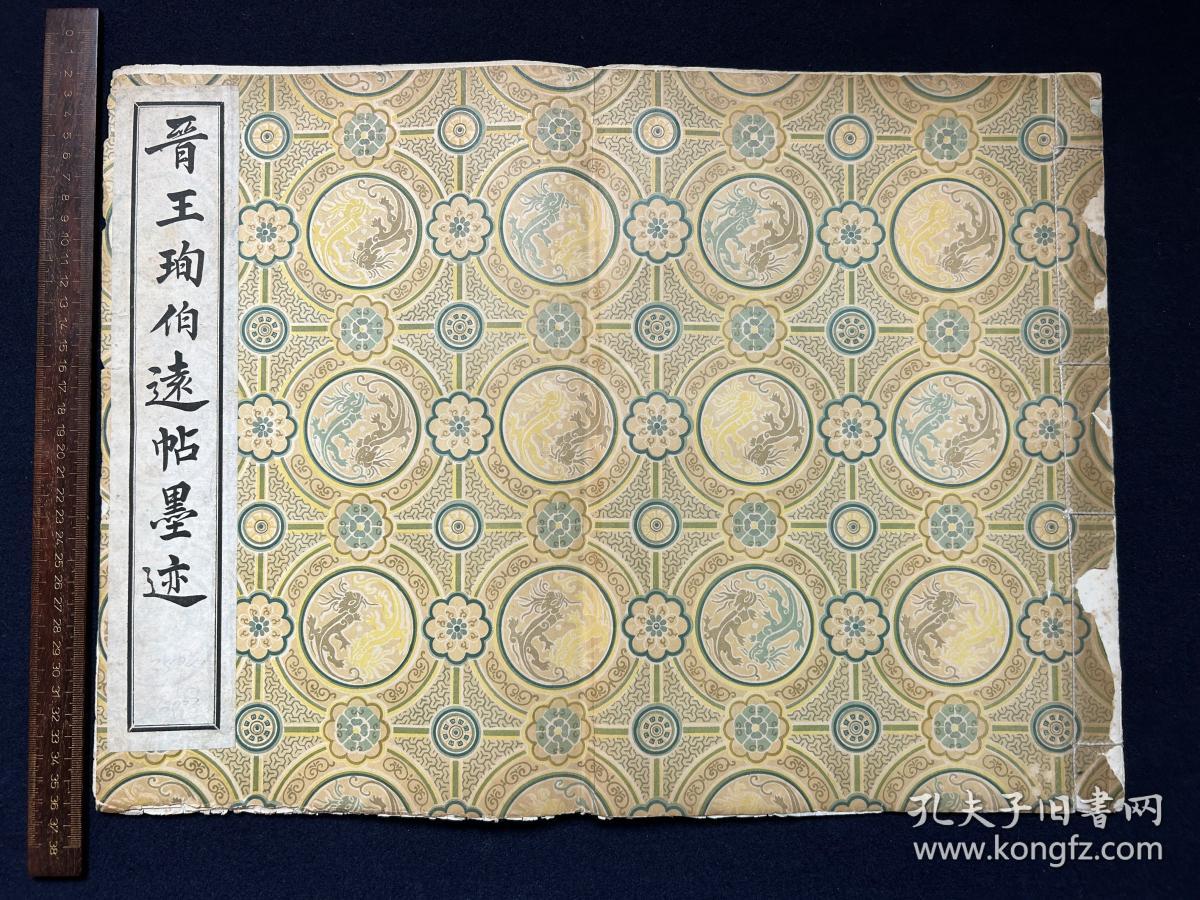 晋王珣伯遠帖墨迹
0 1 2 3 4 5 6 7 8 9 10 11 12 13 14 15 16 17 18 19 20 21 22 23 24 25 26 27 28 29 30 31 32 33 34 35 36 37 38
孔夫子旧書网
www.kongfz.com